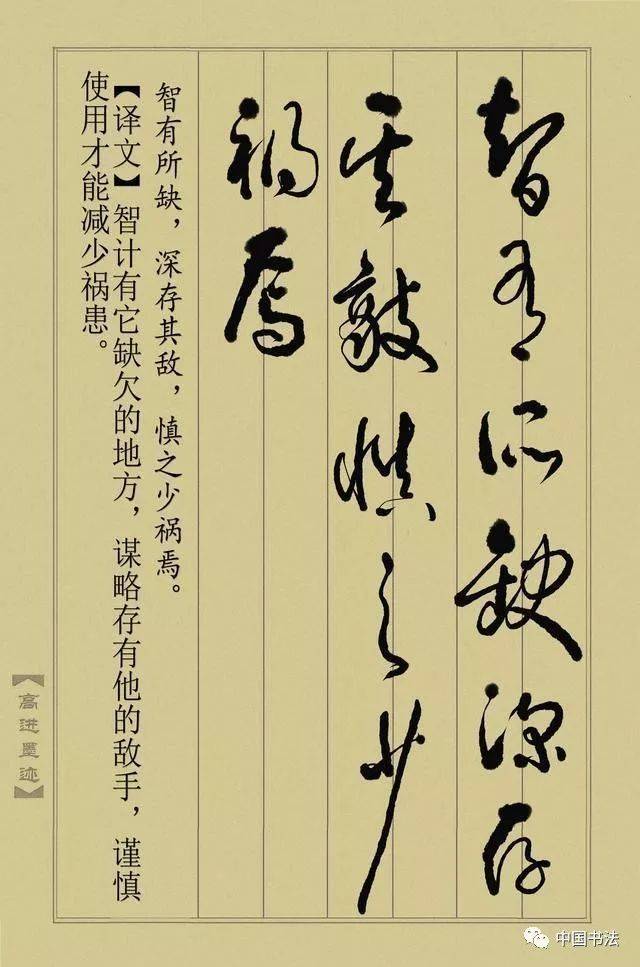 智有所缺深存
其敌慎之少
祸焉
智有所缺，深存其敌，慎之少祸焉。
【译文】智计有它缺欠的地方，谋略存有他的敌手，谨慎
使用才能减少祸患。
【高进墨迹】
中国书法